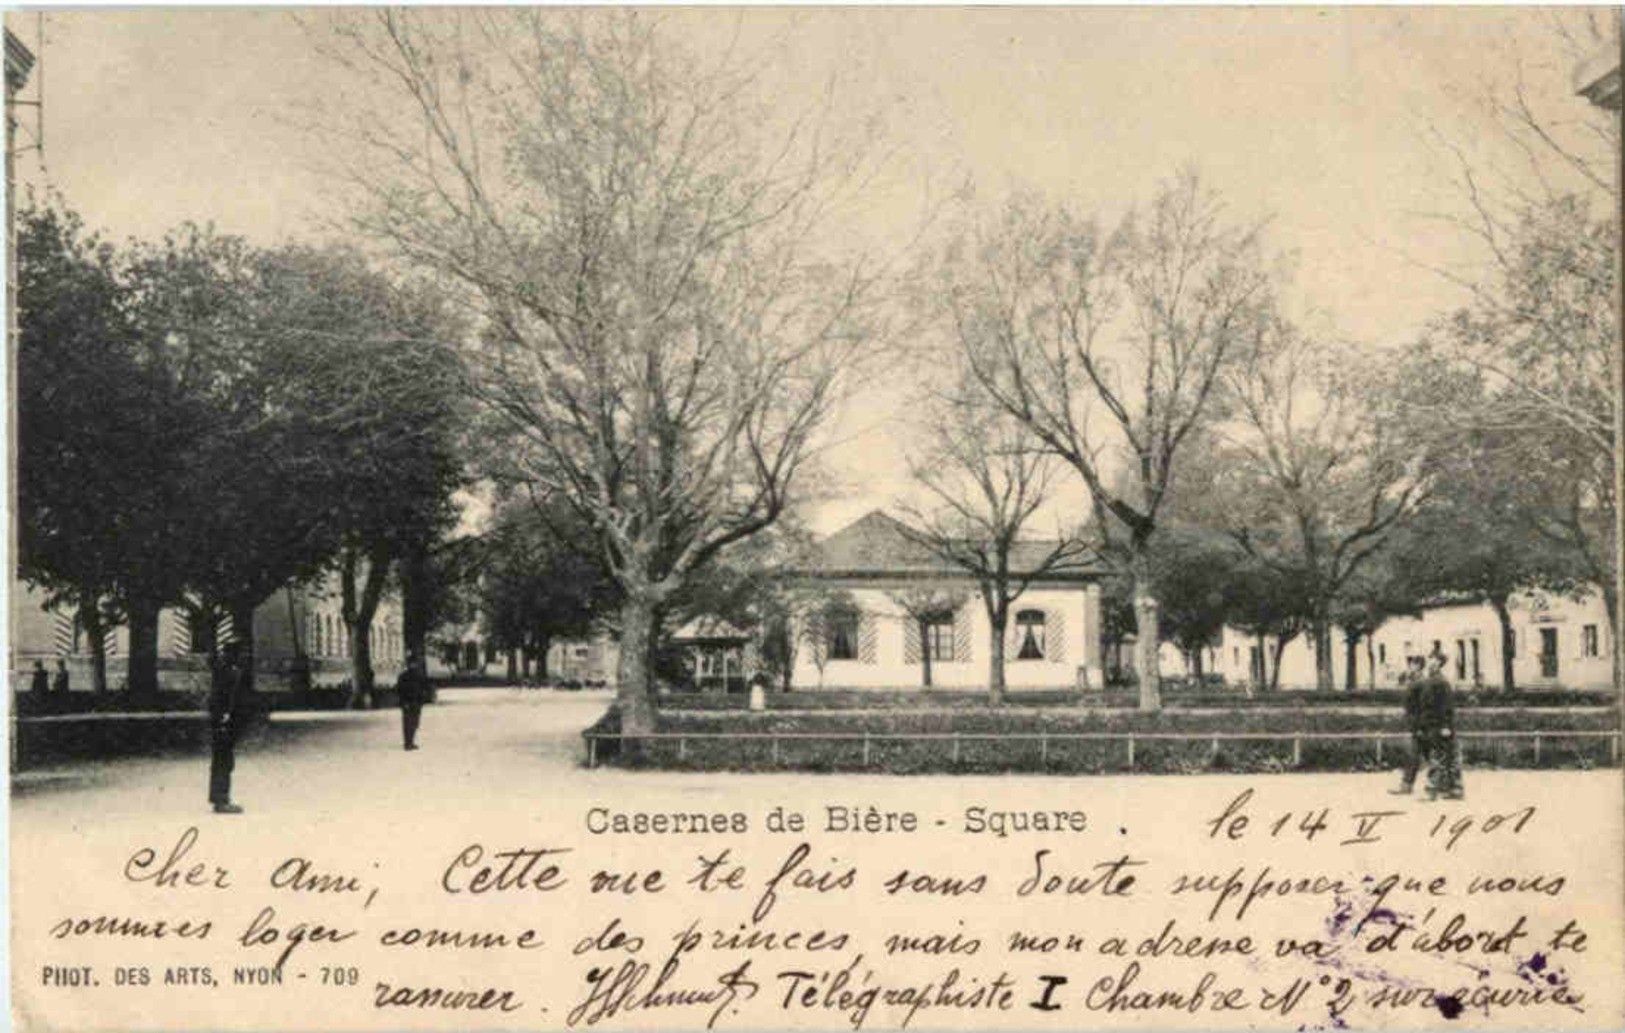 Casernes de Bière - Square . le 14 V 1901
Cher Ami, Cette vue te fais sans doute supposer que nous
sommes loger comme des princes, mais mon adresse va d'abort te
PHOT. DES ARTS, NYON - 709
rassurer. Télégraphiste I Chambre N° 2 sur écurie